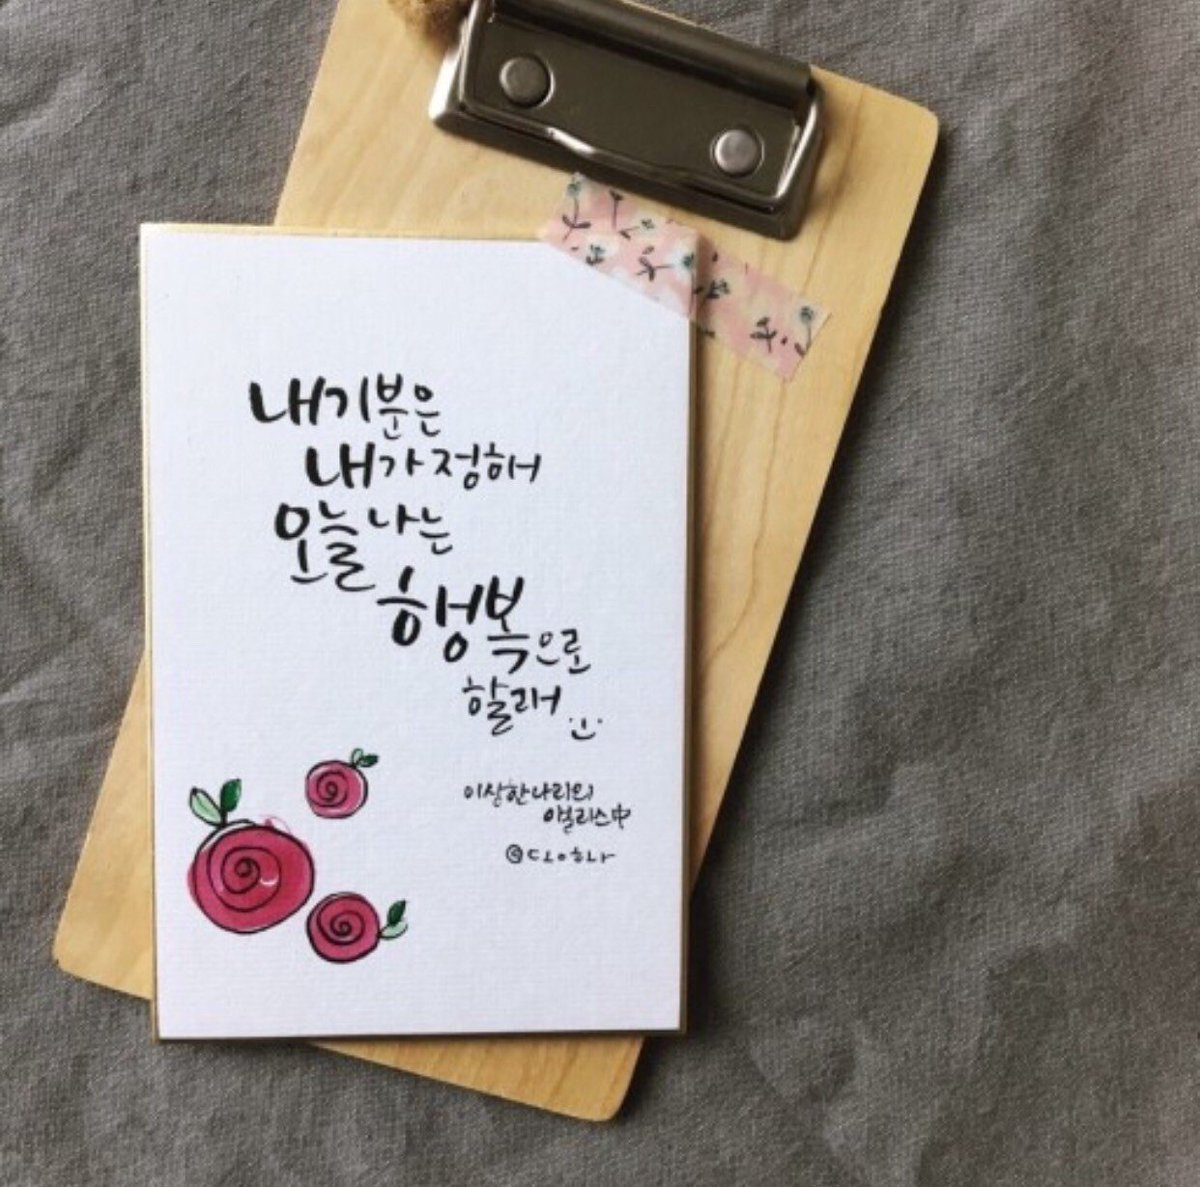 내 기분은
내가 정해
오늘 나는
행복으로
할래
이상한나라의
앨리스中